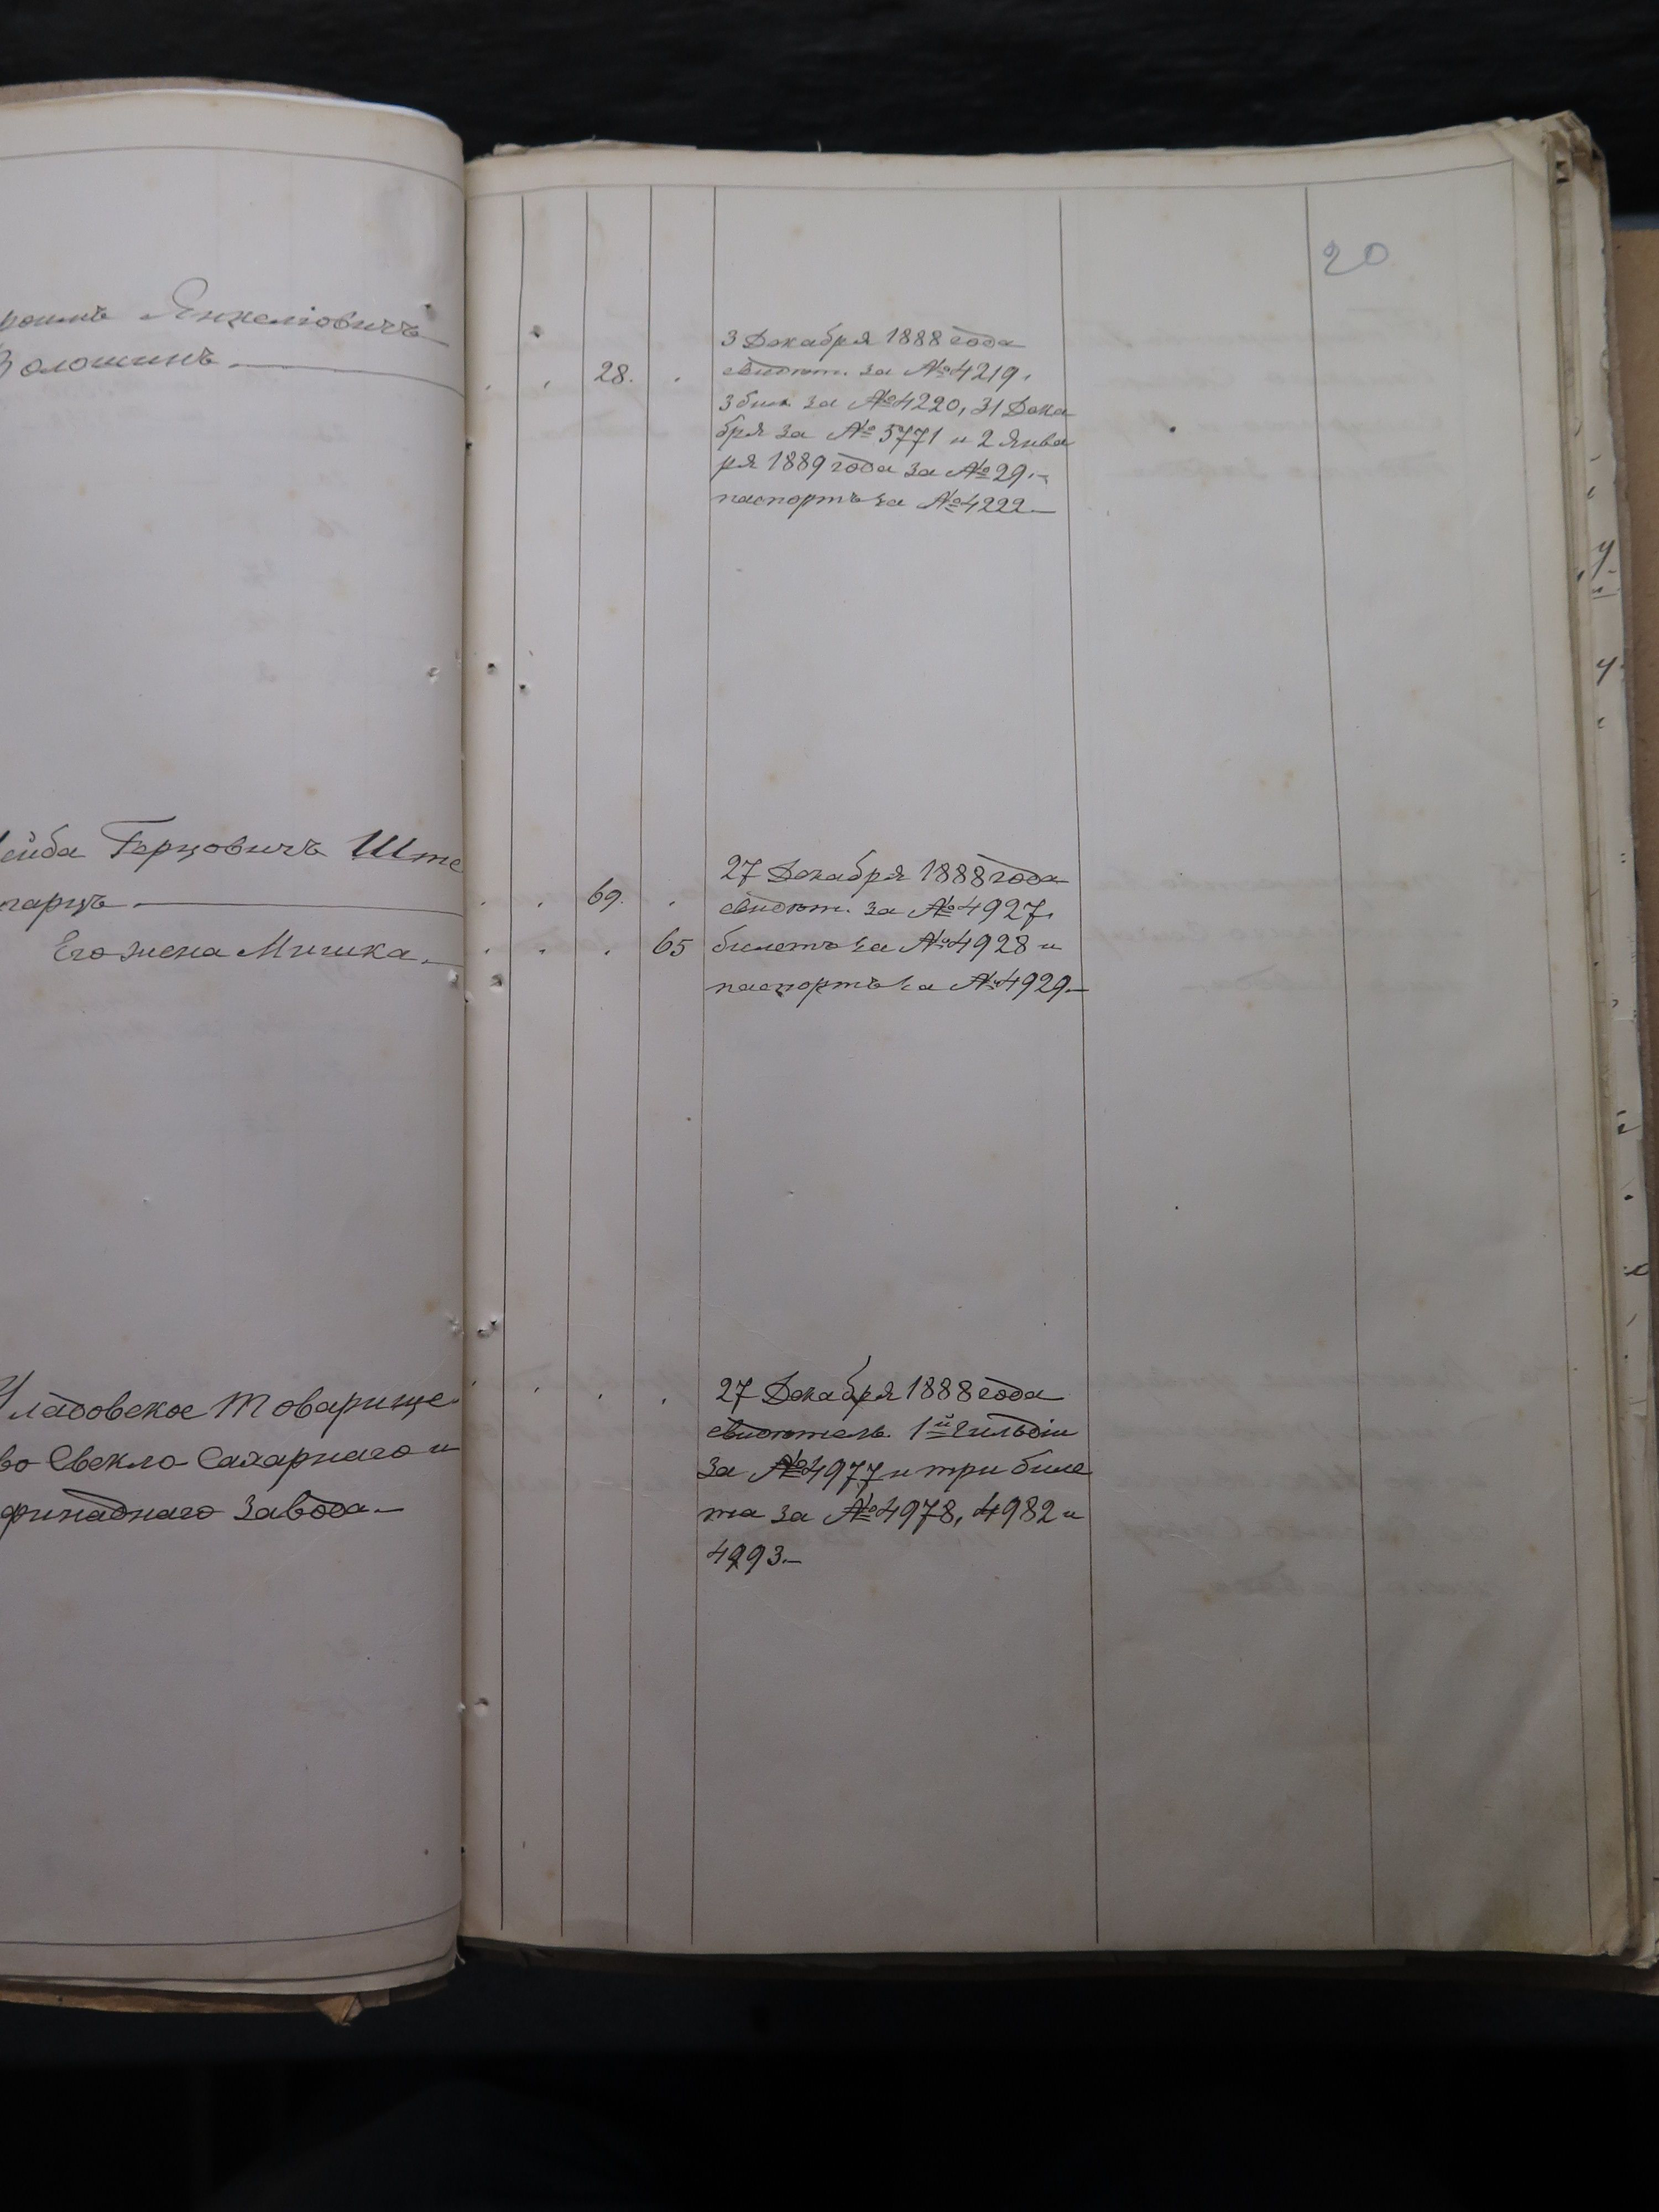 20
Янкеліовичъ
Волошинъ
28.
3 Декабря 1888 года
свидѣт. за №4219,
3 бил. за №4220, 31 Дека
бря за №5771 и 2 Янва
ря 1889 года за №29.-
паспортъ за №4222.-
Лейба Герцовичъ Ште
парцъ
Его жена Миика.
69.
65
27 Декабря 1888 года
свидѣт. за №4927,
билетъ за №4928 и
паспортъ за №4929.-
Уладовское Товарище
во Свекло-Сахарнаго и
финаднаго завода.-
27 Декабря 1888 года
свидѣтель. 1й Гильдіи
за №4977 и три биле
та за №4978, 4982 и
4993.-